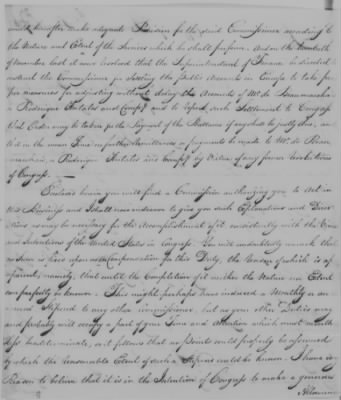 would hereafter make adequate Provision for the said Commissioner according to
the Nature and Extent of the Services which he shall perform. And on the twentieth
of November last it was Resolved that the Superintendent of Finance be directed
instruct the Commissioner for Settling the Public Accounts in Europe to take
measures for adjusting without delay the Accounts of Mr. de Beaumarchais
a Roderique Hortalez and Compy. and to report such Settlement to Congress
that Order may be taken for the Payment of the Ballance if any shall be justly due, and
that in the mean Time no further Remittances or payments be made to Mr. de Beau-
marchais, or Roderique Hortalez and Compy. by Virtue of any former Resolutions
of Congress.
Enclosed herein you will find a Commission authorizing you to Act in
this Business and I shall now endeavor to give you such Explanations and Direc-
tions as may be necessary for the Accomplishment of it, consistently with the Views
and Intentions of the United States in Congress. You will undoubtedly remark that
no Sum is fixed upon as a Compensation for this Duty, the Reason of which is ap-
parent, namely, that until the Completion of it neither the Nature nor Extent
can perfectly be known. This might perhaps have induced a Monthly or an-
nual Stipend to any other Commissioner, but as your other Duties may
and probably will occupy a part of your Time and Attention which must
be indeterminate, it follows that no Point could properly be assumed
by which the reasonable Extent of such a Stipend could be known. I have
Reason to believe that it is in the Intention of Congress to make a generous
Allowance